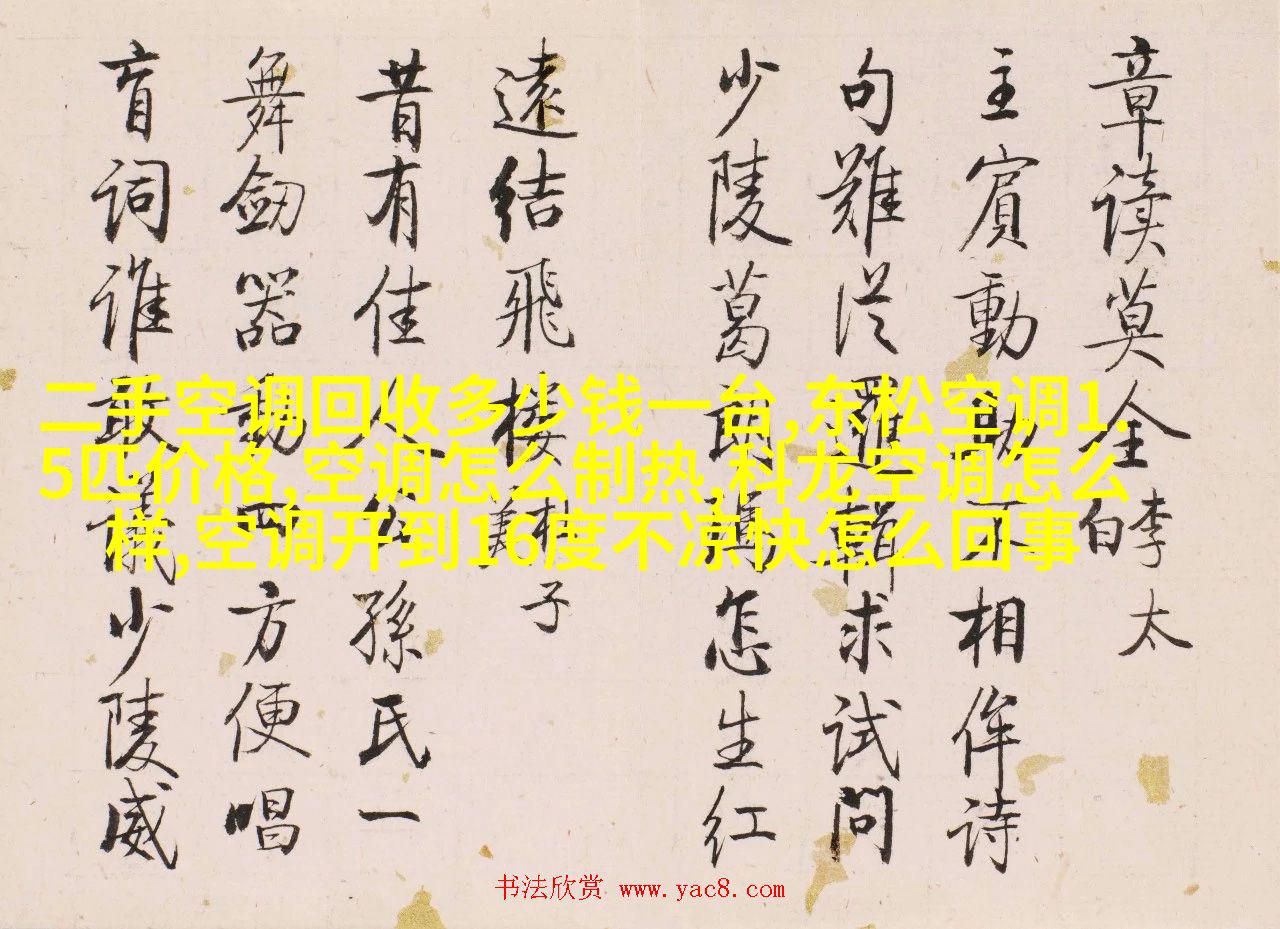 章读莫全李太白
主賓動不相侔詩
句難從羅輯求試問
少陵葛怎生红
遠結飛樓杜子美
昔有佳人公孫氏一
舞劔器動四方便唱
盲词谁敢議少陵威
二手空调回收多少钱一台,东松空调1.
5匹价格,空调怎么制热,科龙空调怎么
样,空调开到16度不凉快怎么回事
书法欣赏 www.yac8.com